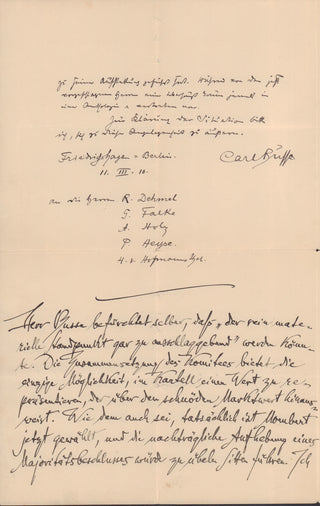 zu seiner Aufstellung geführt hat. Während von den jetzt
vorgeschlagenen Herren kein überhaupt kaum jemals in
einer Anthologie vertreten war.
Zur Klärung der Situation bitte
ich, sich zu dieser Angelegenheit zu äußern.
Friedrichshagen - Berlin.
Carl Busse
11. III. 10.
an die Herren R. Dehmel
G. Falke
A. Holz
P. Heyse.
H. v. Hofmannsthal.
Herr Busse befürchtet selber, daß „der rein mate-
rielle Standpunkt gar zu ausschlaggebend" werden könn-
te. Die Zusammensetzung des Komitees bietet die
einzige Möglichkeit, im Kartell einen Wert zu re-
präsentieren, der über den schnöden Marktwert hinaus-
weist. Wie dem auch sei, tatsächlich ist Mombert
jetzt gewählt, und die nachträgliche Aufhebung eines
Majoritätsbeschlusses würde zu übeln Sitten führen. Ich